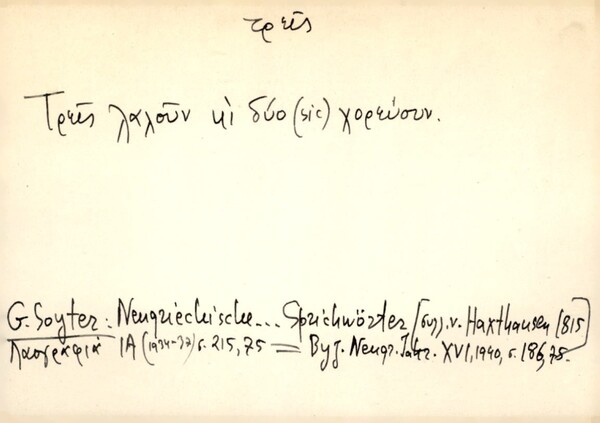 τρεῖς
Τρεῖς λαλοῦν κὶ δύο (sic) χορεύουν.
G. Soyter: Neugriechische... Sprichwörter [συλ. v. Haxthausen 1815]
Λαογραφία ΙΑ (1934-37) σ. 215,75 = Byz. Neugr. Jahr. XVI, 1940, σ. 186,75.